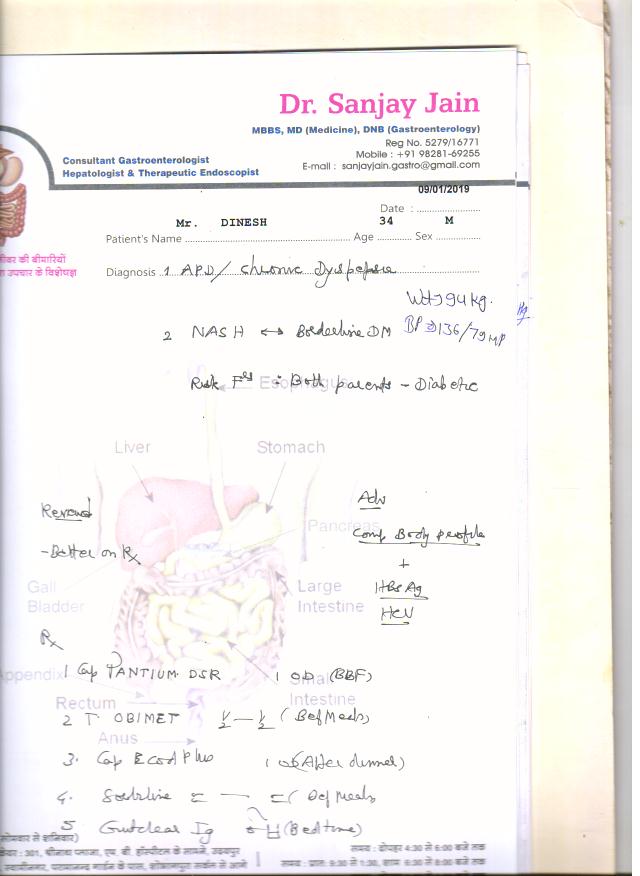 Dr. Sanjay Jain
MBBS, MD (Medicine), DNB (Gastroenterology)
Reg No. 5279/16771
Mobile : +91 98281-69255
E-mail : sanjayjain.gastro@gmail.com
Consultant Gastroenterologist
Hepatologist & Therapeutic Endoscopist
09/01/2019
Date :
Mr. DINESH 34 M
Patient's Name Age Sex
वर की बीमारियों
उपचार के विशेषज्ञ
Diagnosis 1 APD / Chronic Dyspepsia
Wt 94 kg.
2 NASH ↔ Borderline DM BP 136/79
Risk F Both parents - Diabetic
Esophagus
Liver Stomach
Adv
Review
Comp Body profile
Pancreas
- Better on Rx
+
Gall
Bladder
Large
Intestine
HBsAg
HCV
Rx
Appendix
1 Cap PANTIUM DSR 1 OD (BBF)
Small
Intestine
Rectum
2 T. OBIMET ½ — ½ (Bef Meals)
Anus
3. Cap Ecod Plus 1 (After dinner)
4. — (Bef Meals)
5 Gutclear (Bedtime)
सोमवार से शनिवार) समय : दोपहर 4:30 से 6:00 बजे तक
301, श्रीनाथ प्लाजा, एम. बी. हॉस्पीटल के सामने, उदयपुर
समय : प्रातः 9:30 से 1:30, शाम 6:30 से 8:00 बजे तक